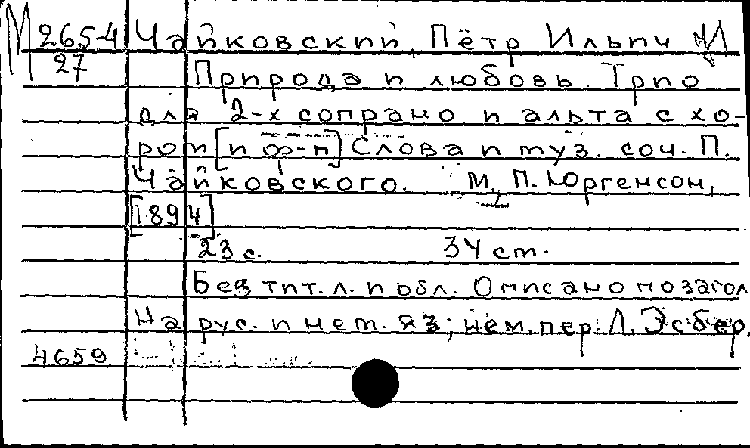 М 2654 Чайковский, Пётр Ильич
27 Природа и любовь. Трио
для 2-х сопрано и альта с хо-
ром [и ф-п] Слова и муз. соч. П.
Чайковского. М., П. Юргенсон,
[1894]
23 с. 34 ст.
Без тит. л. и обл. Описано по загол
На рус. и нем. яз; нем. пер. Л. Эсбер.
4659